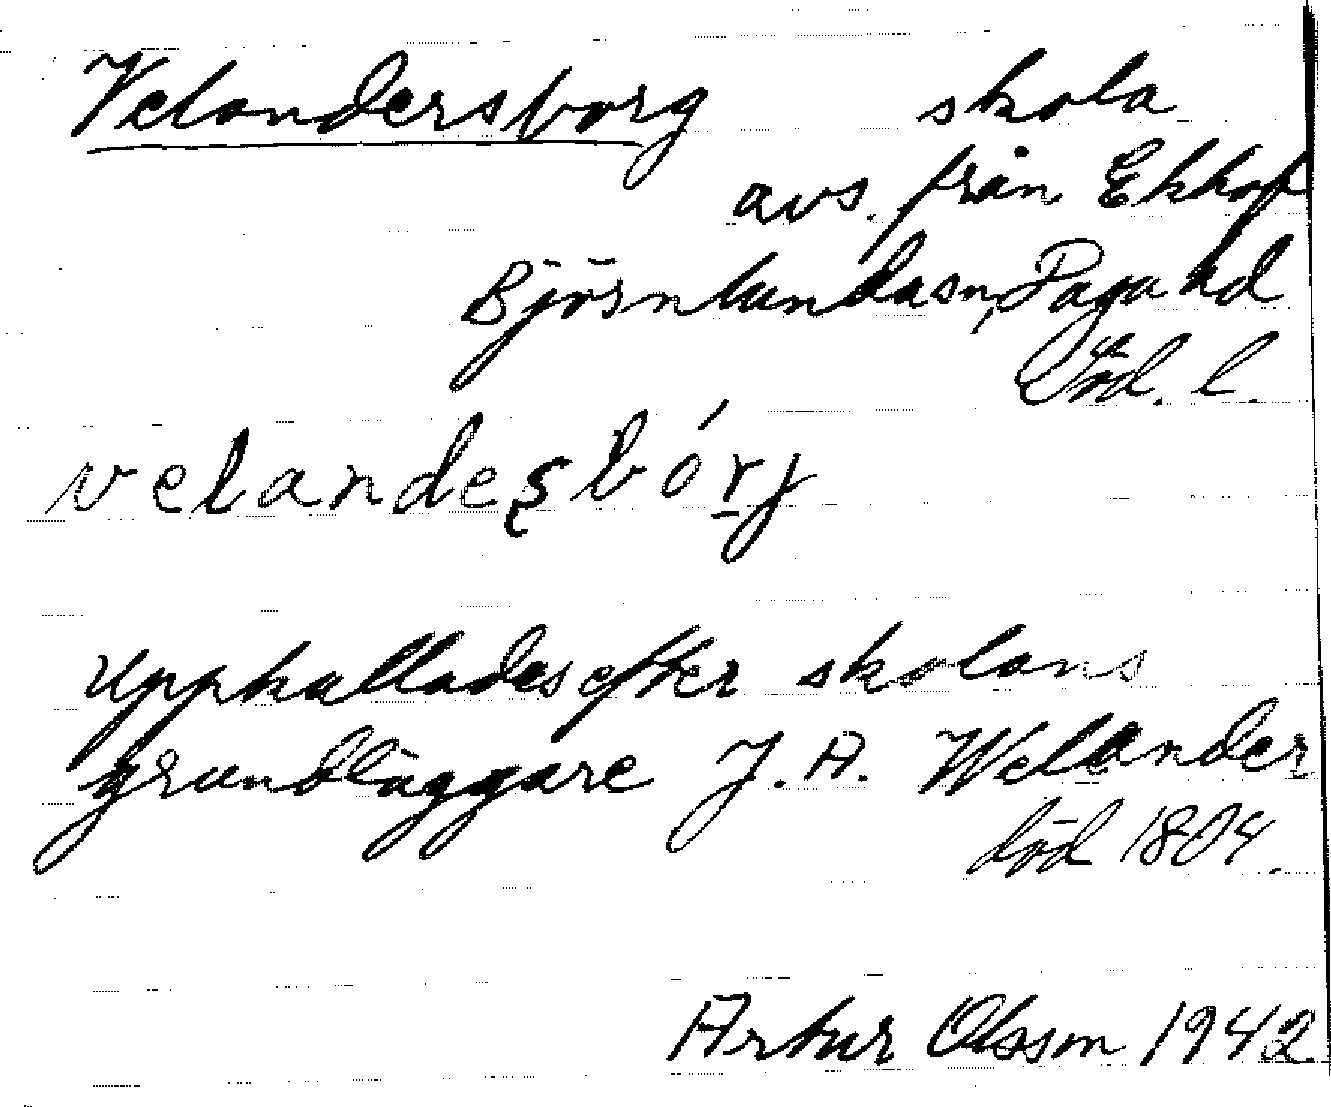 Velandersborg skola
avs. från Ekhof
Björnlundasn, Daga hd
Söd. l.
velandesbórj
Upphallades efter skolans
grundläggare J. A. Welander
död 1804.
Artur Olsson 1942